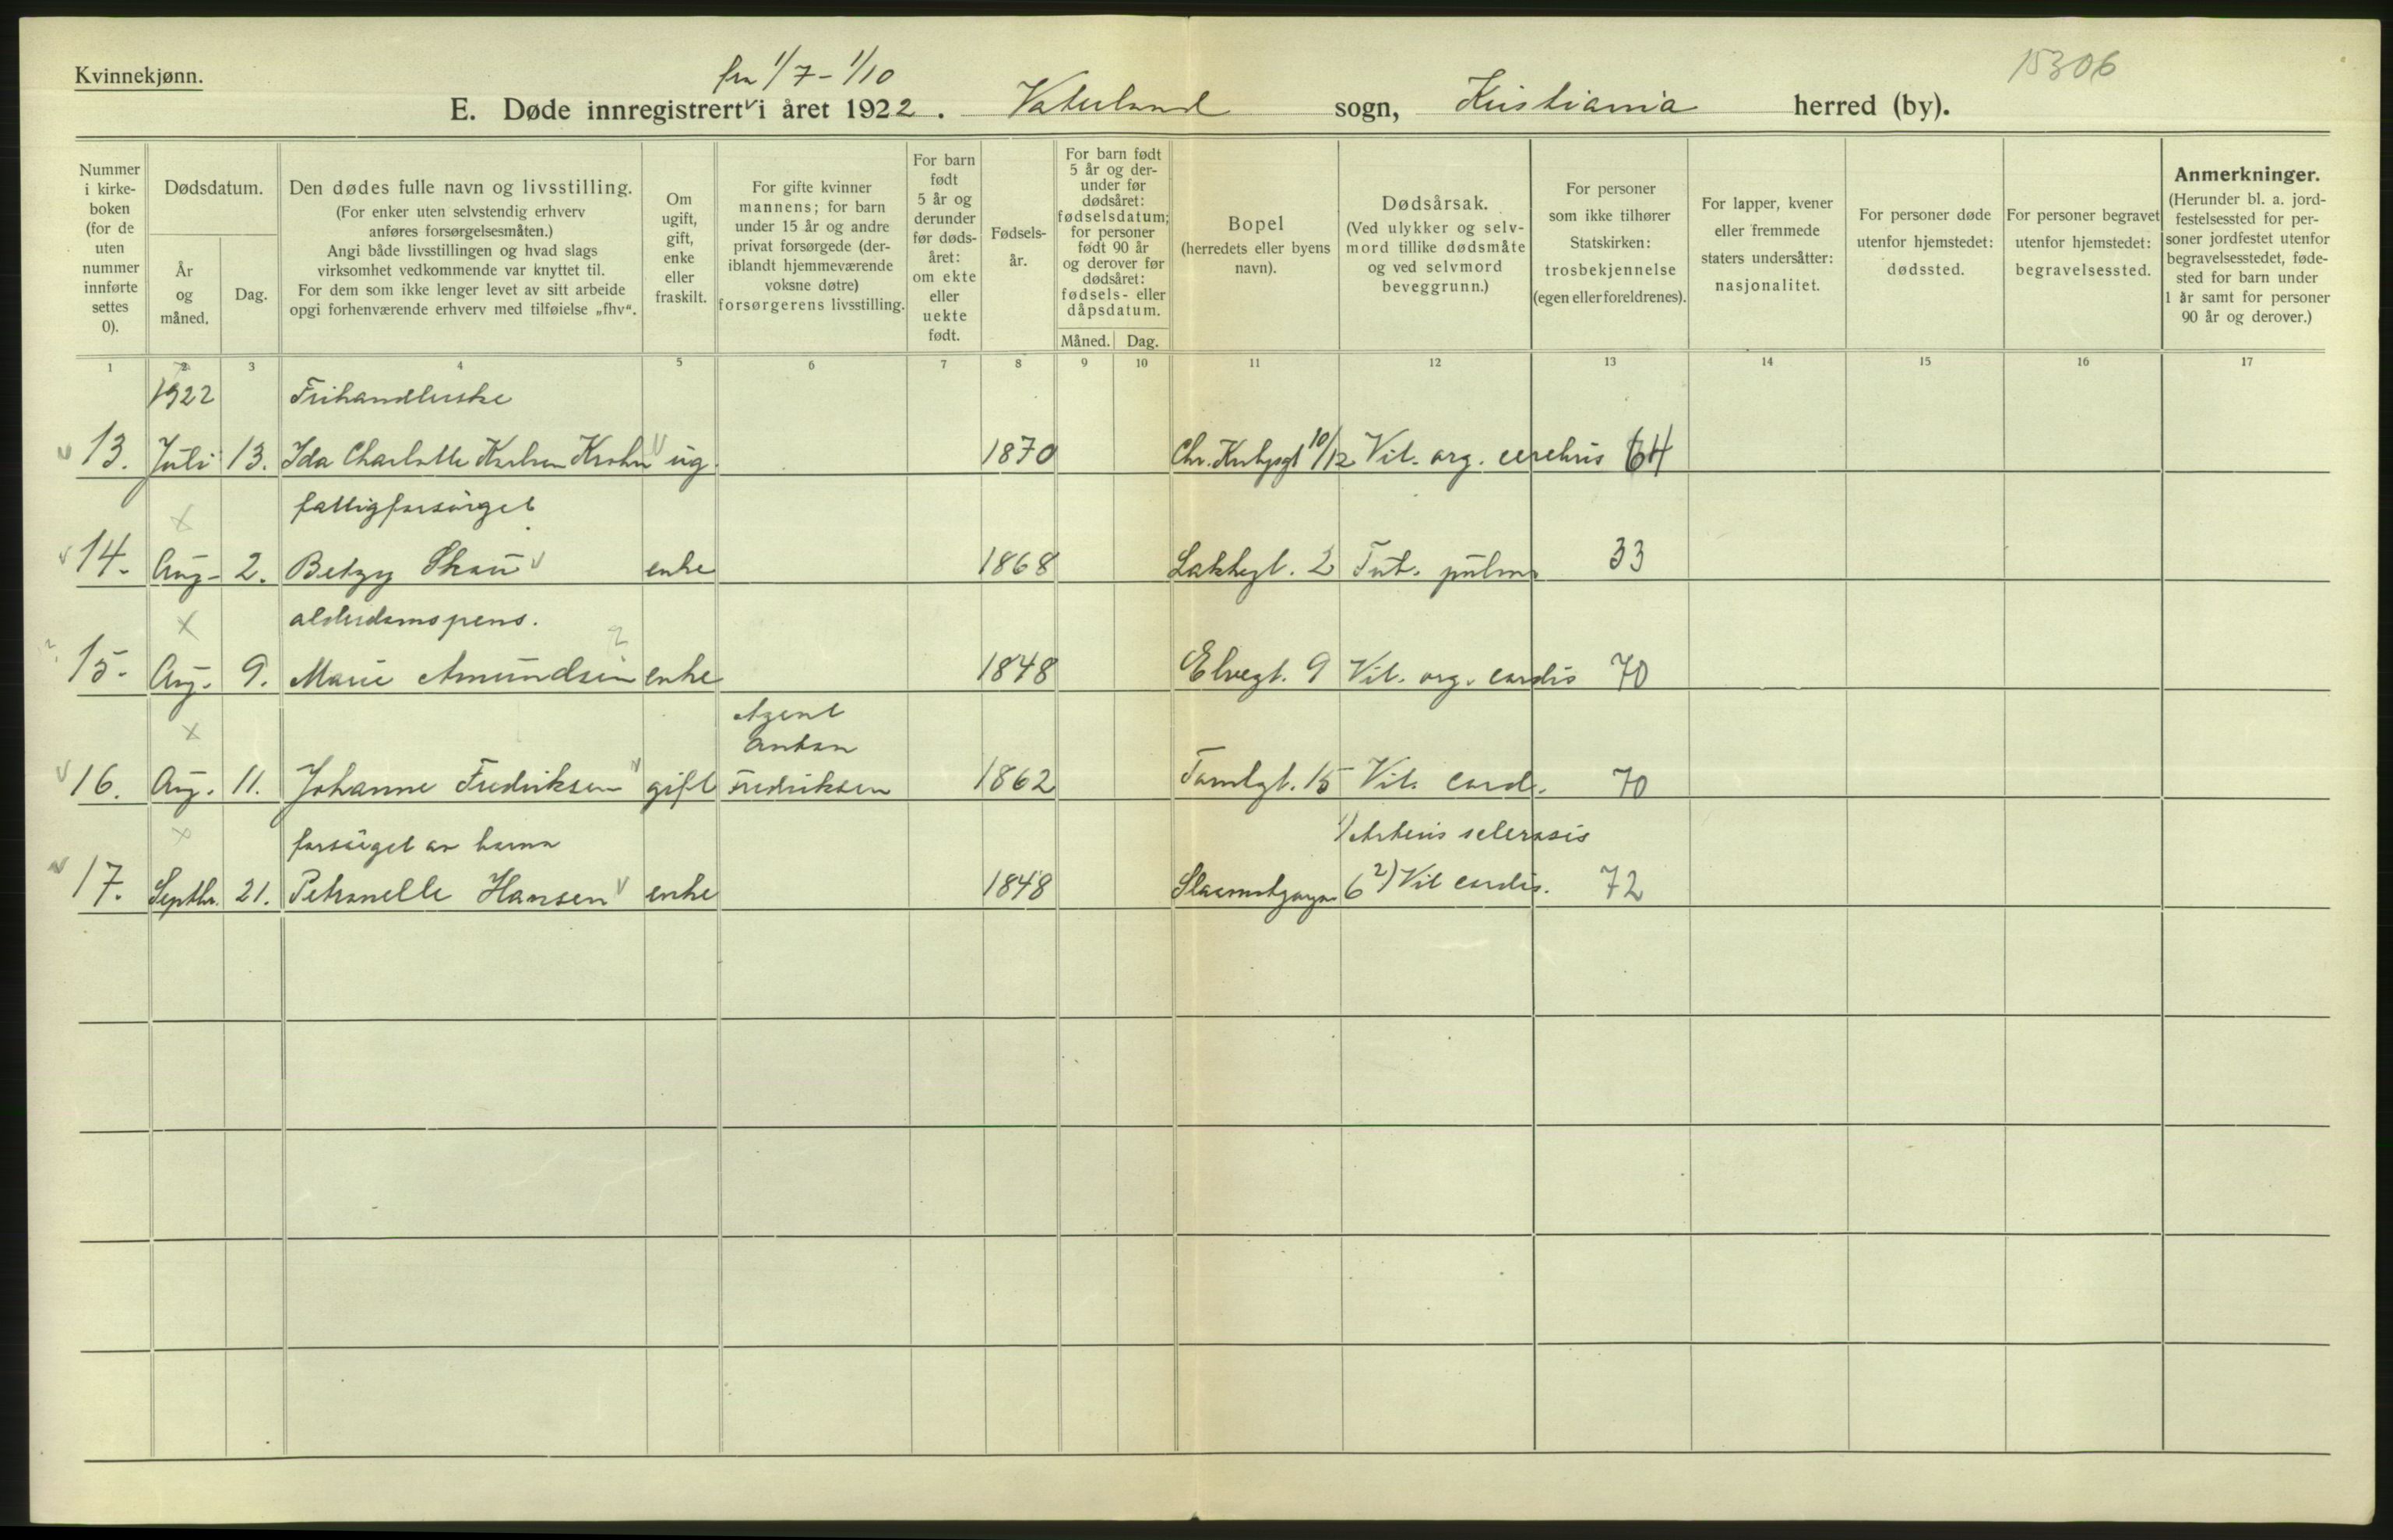 Kvinnekjønn.
fra 1/7 - 1/10
15306
E. Døde innregistrert i året 1922. Vaterland sogn, Kristiania herred (by).
Nummer i kirkeboken (for de uten nummer innførte settes 0).
Dødsdatum.
År og måned.
Dag.
Den dødes fulle navn og livsstilling.
(For enker uten selvstendig erhverv anføres forsørgelsesmåten.)
Angi både livsstillingen og hvad slags virksomhet vedkommende var knyttet til.
For dem som ikke lenger levet av sitt arbeide opgi forhenværende erhverv med tilføielse „fhv“.
Om ugift, gift, enke eller fraskilt.
For gifte kvinner mannens; for barn under 15 år og andre privat forsørgede (deriblandt hjemmeværende voksne døtre) forsørgerens livsstilling.
For barn født 5 år og derunder før dødsåret: om ekte eller uekte født.
Fødselsår.
For barn født 5 år og derunder før dødsåret: fødselsdatum; for personer født 90 år og derover før dødsåret: fødsels- eller dåpsdatum.
Måned. Dag.
Bopel
(herredets eller byens navn).
Dødsårsak.
(Ved ulykker og selvmord tillike dødsmåte og ved selvmord beveggrunn.)
For personer som ikke tilhører Statskirken: trosbekjennelse (egen eller foreldrenes).
For lapper, kvener eller fremmede staters undersåtter: nasjonalitet.
For personer døde utenfor hjemstedet: dødssted.
For personer begravet utenfor hjemstedet: begravelsessted.
Anmerkninger.
(Herunder bl. a. jordfestelsessted for personer jordfestet utenfor begravelsesstedet, fødested for barn under 1 år samt for personer 90 år og derover.)
1 2 3 4 5 6 7 8 9 10 11 12 13 14 15 16 17
1922 Frihandlerske
13. Juli 13. Ida Charlotte Karlsen Krohn ug. 1870 Chr. Krohgsgt 10/12 Vit. org. cerebris 64
fattigforsørget
14. Aug. 2. Betzy Skau enke 1868 Lakkegt. 2 Tub. pulm 33
alderdomspens.
15. Aug. 9. Marie Amundsen enke 1848 Elvegt. 9 Vit. org. cordis 70
Agent
Anton
16. Aug. 11. Johanne Fredriksen gift Fredriksen 1862 Tomtegt. 15 Vit. cord. 70
forsørget av barna 1) Arterio sclerosis
17. Septbr. 21. Petronelle Hansen enke 1848 6 2) Vit cordis. 72